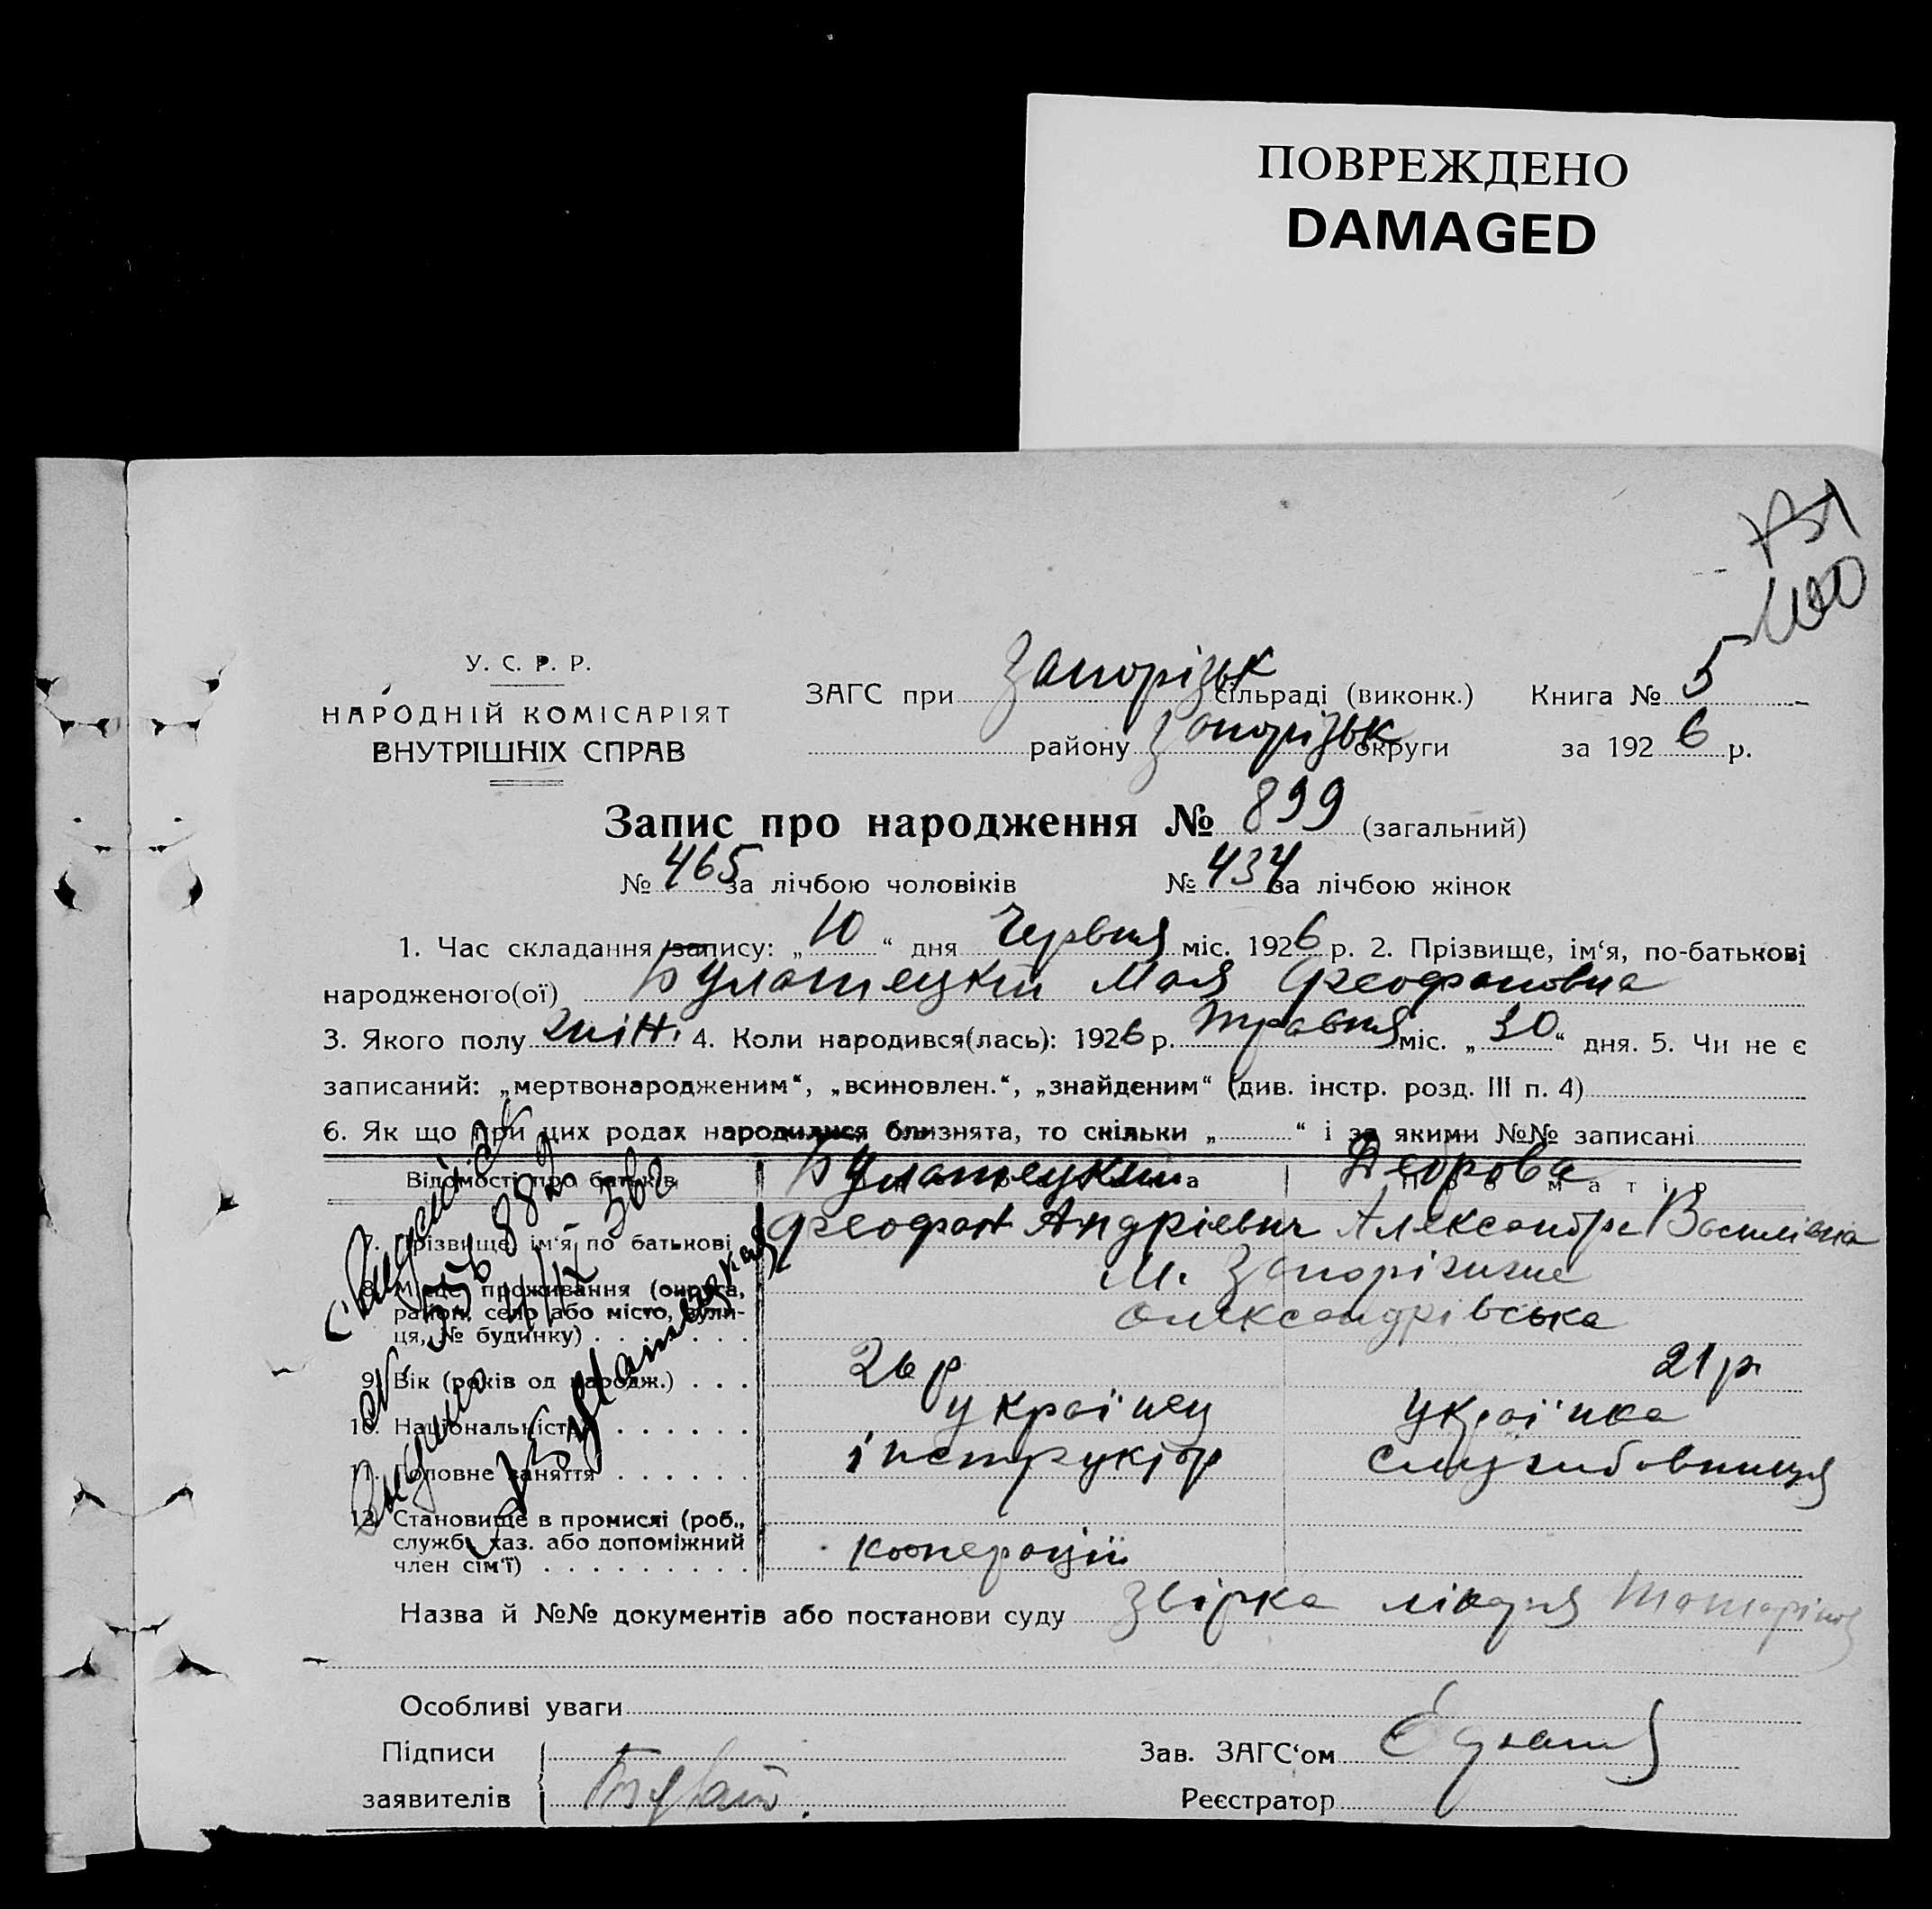 ПОВРЕЖДЕНО
DAMAGED
400
У. С. Р. Р.
НАРОДНІЙ КОМІСАРІЯТ
ВНУТРІШНІХ СПРАВ
ЗАГС при Запорізьк сільраді (виконк.) Книга № 5
району Запорізьк округи за 1926 р.
Запис про народження № 899 (загальний)
№ 465 за лічбою чоловіків № 434 за лічбою жінок
1. Час складання запису: „10“ дня Червня міс. 1926 р. 2. Прізвище, ім‘я, по-батькові
народженого(ої) Булатецкій Мая Феофановна
3. Якого полу жін. 4. Коли народився(лась): 1926 р. травня міс. „30“ дня. 5. Чи не є
записаний: „мертвонародженим“, „всиновлен.“, „знайденим“ (див. інстр. розд. III п. 4)
6. Як що при цих родах народилися близнята, то скільки „ “ і за якими №№ записані
Відомості про батьків Булатецкий Деорова матір
7. Прізвище, ім‘я по батькові Феофан Андрієвич Александра Василівна
8. Місце проживання (округа, м. Запоріжжє
район, село або місто, вули-
ця, № будинку) Олександрівська
9. Вік (років од народж.) 26 р 21 р
10. Національність українец українка
11. Головне заняття інструктор службовниця
12. Становище в промислі (роб.,
службі, хаз. або допоміжний
член сім‘ї) кооперації
Назва й №№ документів або постанови суду Звірка лікаря
Особливі уваги
Підписи
заявителів Булат.
Зав. ЗАГС‘ом
Реєстратор